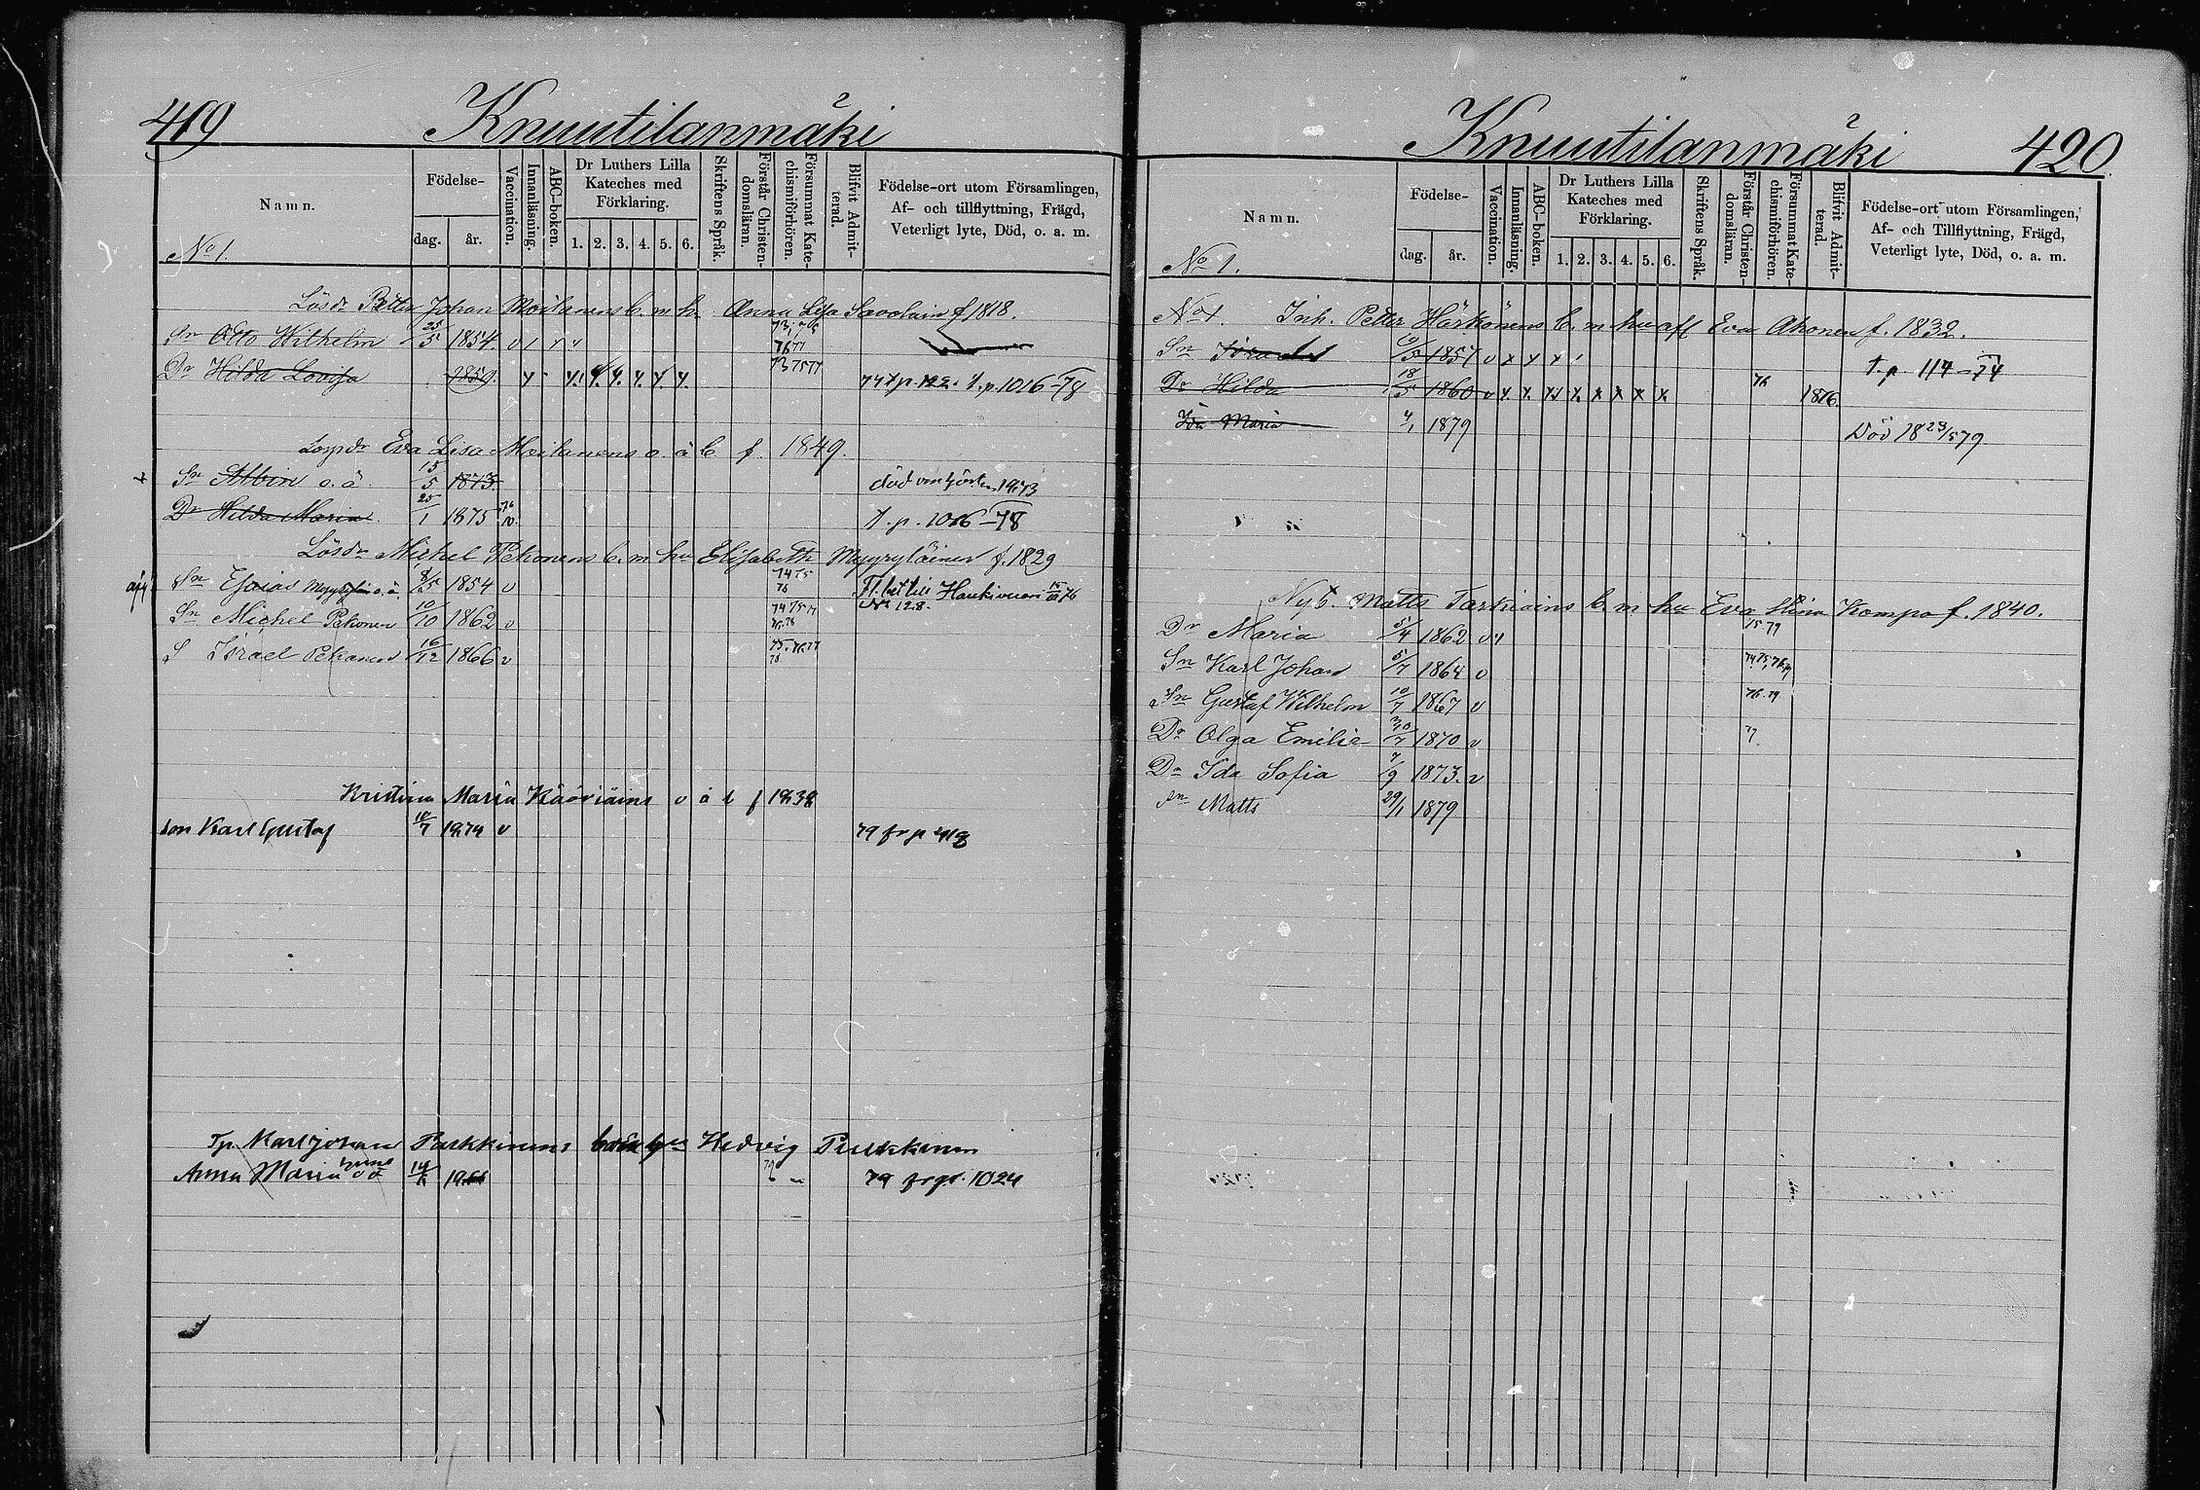 419 Knuutilanmäki
Namn.
Födelse-
dag. år.
Vaccination.
Innanläsning.
ABC-boken.
Dr Luthers Lilla Kateches med Förklaring.
1. 2. 3. 4. 5. 6.
Skriftens Språk.
Förstår Christendomsläran.
Försummat Katechismiförhören.
Blifvit Admitterad.
Födelse-ort utom Församlingen,
Af- och tillflyttning, Frägd,
Veterligt lyte, Död, o. a. m.
No 1.
Lösdr Petter Johan Moilanens b. m. h. Anna Lisa Savolain f 1818.
Sn Otto Wilhelm 25/5 1854. v
Dr Hilda Lovisa 1859. 73 75 77 p. 1016-78
Eva Lisa Moilanens o. ä b f. 1849.
Sn Albin o. ä 15/5 1873. död
Dr Hilda Maria 25/1 1875 76 v. t. p. 1016-78
Lösdr Michel Pekonens b. m hu Elisabeth Myyryläinen f. 1829
Sn Esaias o. ä. 1854 v 74 75 76 Haukivuori
Sn Michel Pekonen 10/10 1862 v 74 75 77
S Israel Pekonen 16/12 1866 v 75. 76 77 78
Kristina Maria Kääriäins o ä b f 1838
son Karl Gustaf 10/7 1874 v 79 fr p 418
Karl Johan Parkkinens Hedvig
Anna Maria 79 fr p. 1024
Knuutilanmäki 420
Namn.
Födelse-
dag. år.
Vaccination.
Innanläsning.
ABC-boken.
Dr Luthers Lilla Kateches med Förklaring.
1. 2. 3. 4. 5. 6.
Skriftens Språk.
Förstår Christendomsläran.
Försummat Katechismiförhören.
Blifvit Admitterad.
Födelse-ort utom Församlingen,
Af- och Tillflyttning, Frägd,
Veterligt lyte, Död, o. a. m.
No 1.
No 1. Inh. Petter Härkönens b. m. hu afl Eva Ahonen f. 1832.
Sn Israel 1857 v x x x t. p. 114-74
Dr Hilda 18/5 1860 v x x x x x x x x 76 1876.
Ida Maria 4/1 1879 Död 18 23/5 79
Nyb. Matts Tarkiains b m hu Eva Stina Kompo f. 1840.
Dr Maria 5/4 1862 v 75. 79
Sn Karl Johan 5/7 1864 v
Sn Gustaf Wilhelm 10/7 1867 v 76. 79
Dr Olga Emilie 30/7 1870 v
Dr Ida Sofia 7/9 1873. v
Sn Matts 29/1 1879